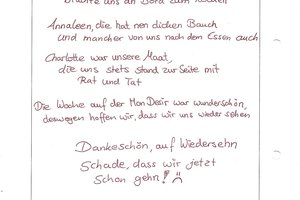 uns an Bord zum
Annaleen, die hat nen dicken Bauch
und mancher von uns nach dem Essen auch
Charlotte war unsere Maat,
die uns stets stand zur Seite mit
Rat und Tat
Die Woche auf der Mon Desir war wunderschön,
deswegen hoffen wir, dass wir uns wieder sehen
Dankeschön, auf Wiedersehn
Schade, dass wir jetzt
schon gehn!